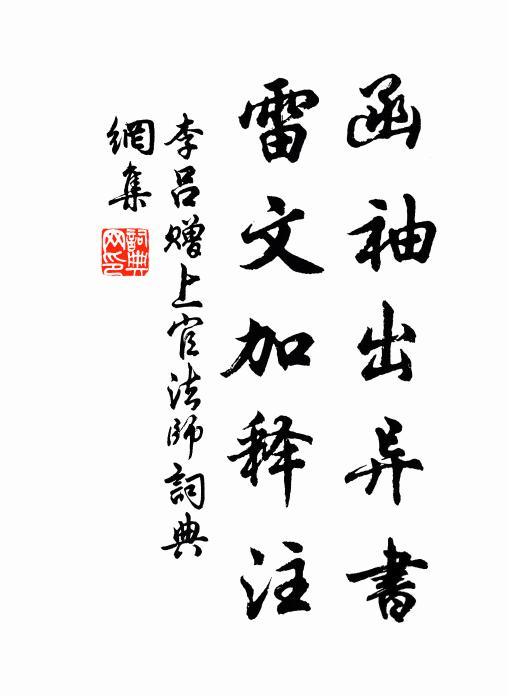 函袖出异書
雷文加释注
李吕赠上官法师詞典
網集
詞典网印